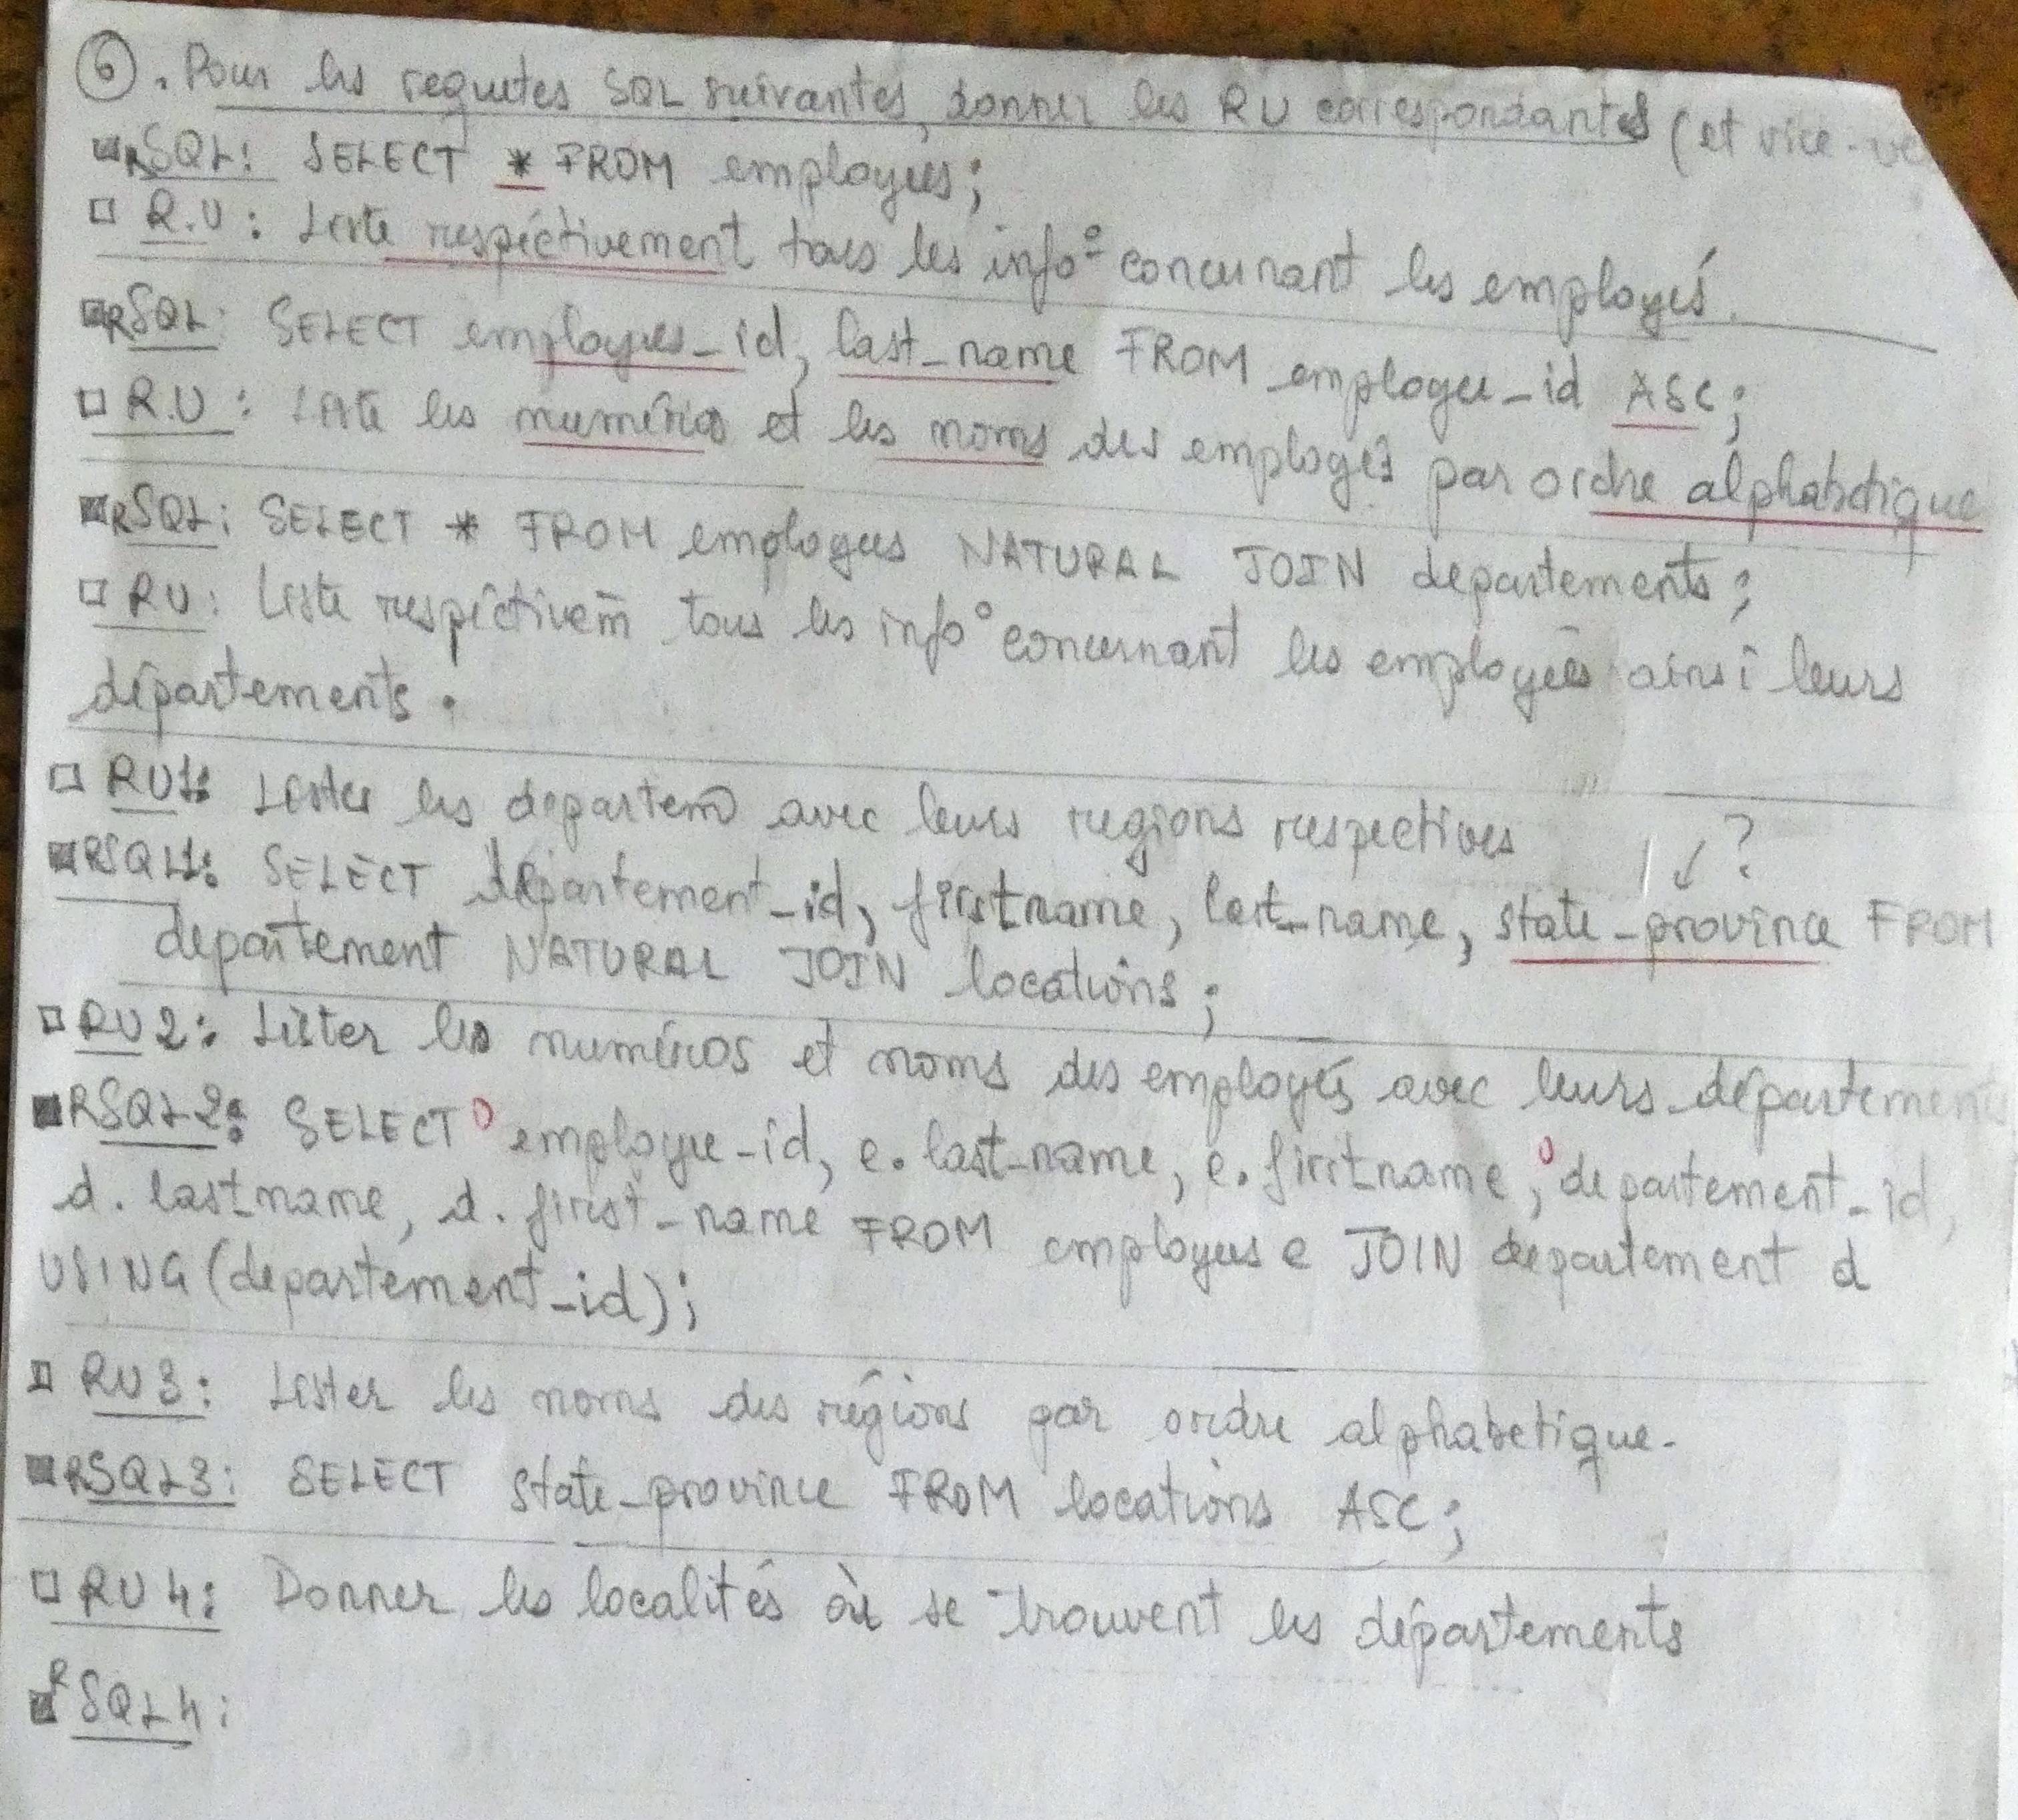 ⑥. Pour les requetes SQL suivantes, donner les RU correspondants (et vice-ve
RSQL: SELECT * FROM employees;
R.U: Liste respéctivement tous les info° concernant les employés.
RSQL: SELECT employees_id, last_name FROM employee_id ASC;
R.U: Liste les numéros et les noms des employés par ordre alphabetique
RSQL: SELECT * FROM employees NATURAL JOIN departements;
RU: Liste respéctivem̄ tous les info° concernant les employées ainsi leurs
départements.
RU1: Lister les departem avec leurs regions respectives
?
RSQL1: SELECT departement_id, first_name, last_name, state_province FROM
departement NATURAL JOIN locations;
RU2: Lister les numéros et noms des employés avec leurs départements
RSQL2: SELECT employee_id, e.last_name, e.first_name, departement_id,
d.last_name, d.first_name FROM employees e JOIN departement d
USING (departement_id);
RU3: Lister les noms des régions par ordre alphabetique.
RSQL3: SELECT state_province FROM locations ASC;
RU4: Donner les localités où se trouvent les départements
RSQL4: